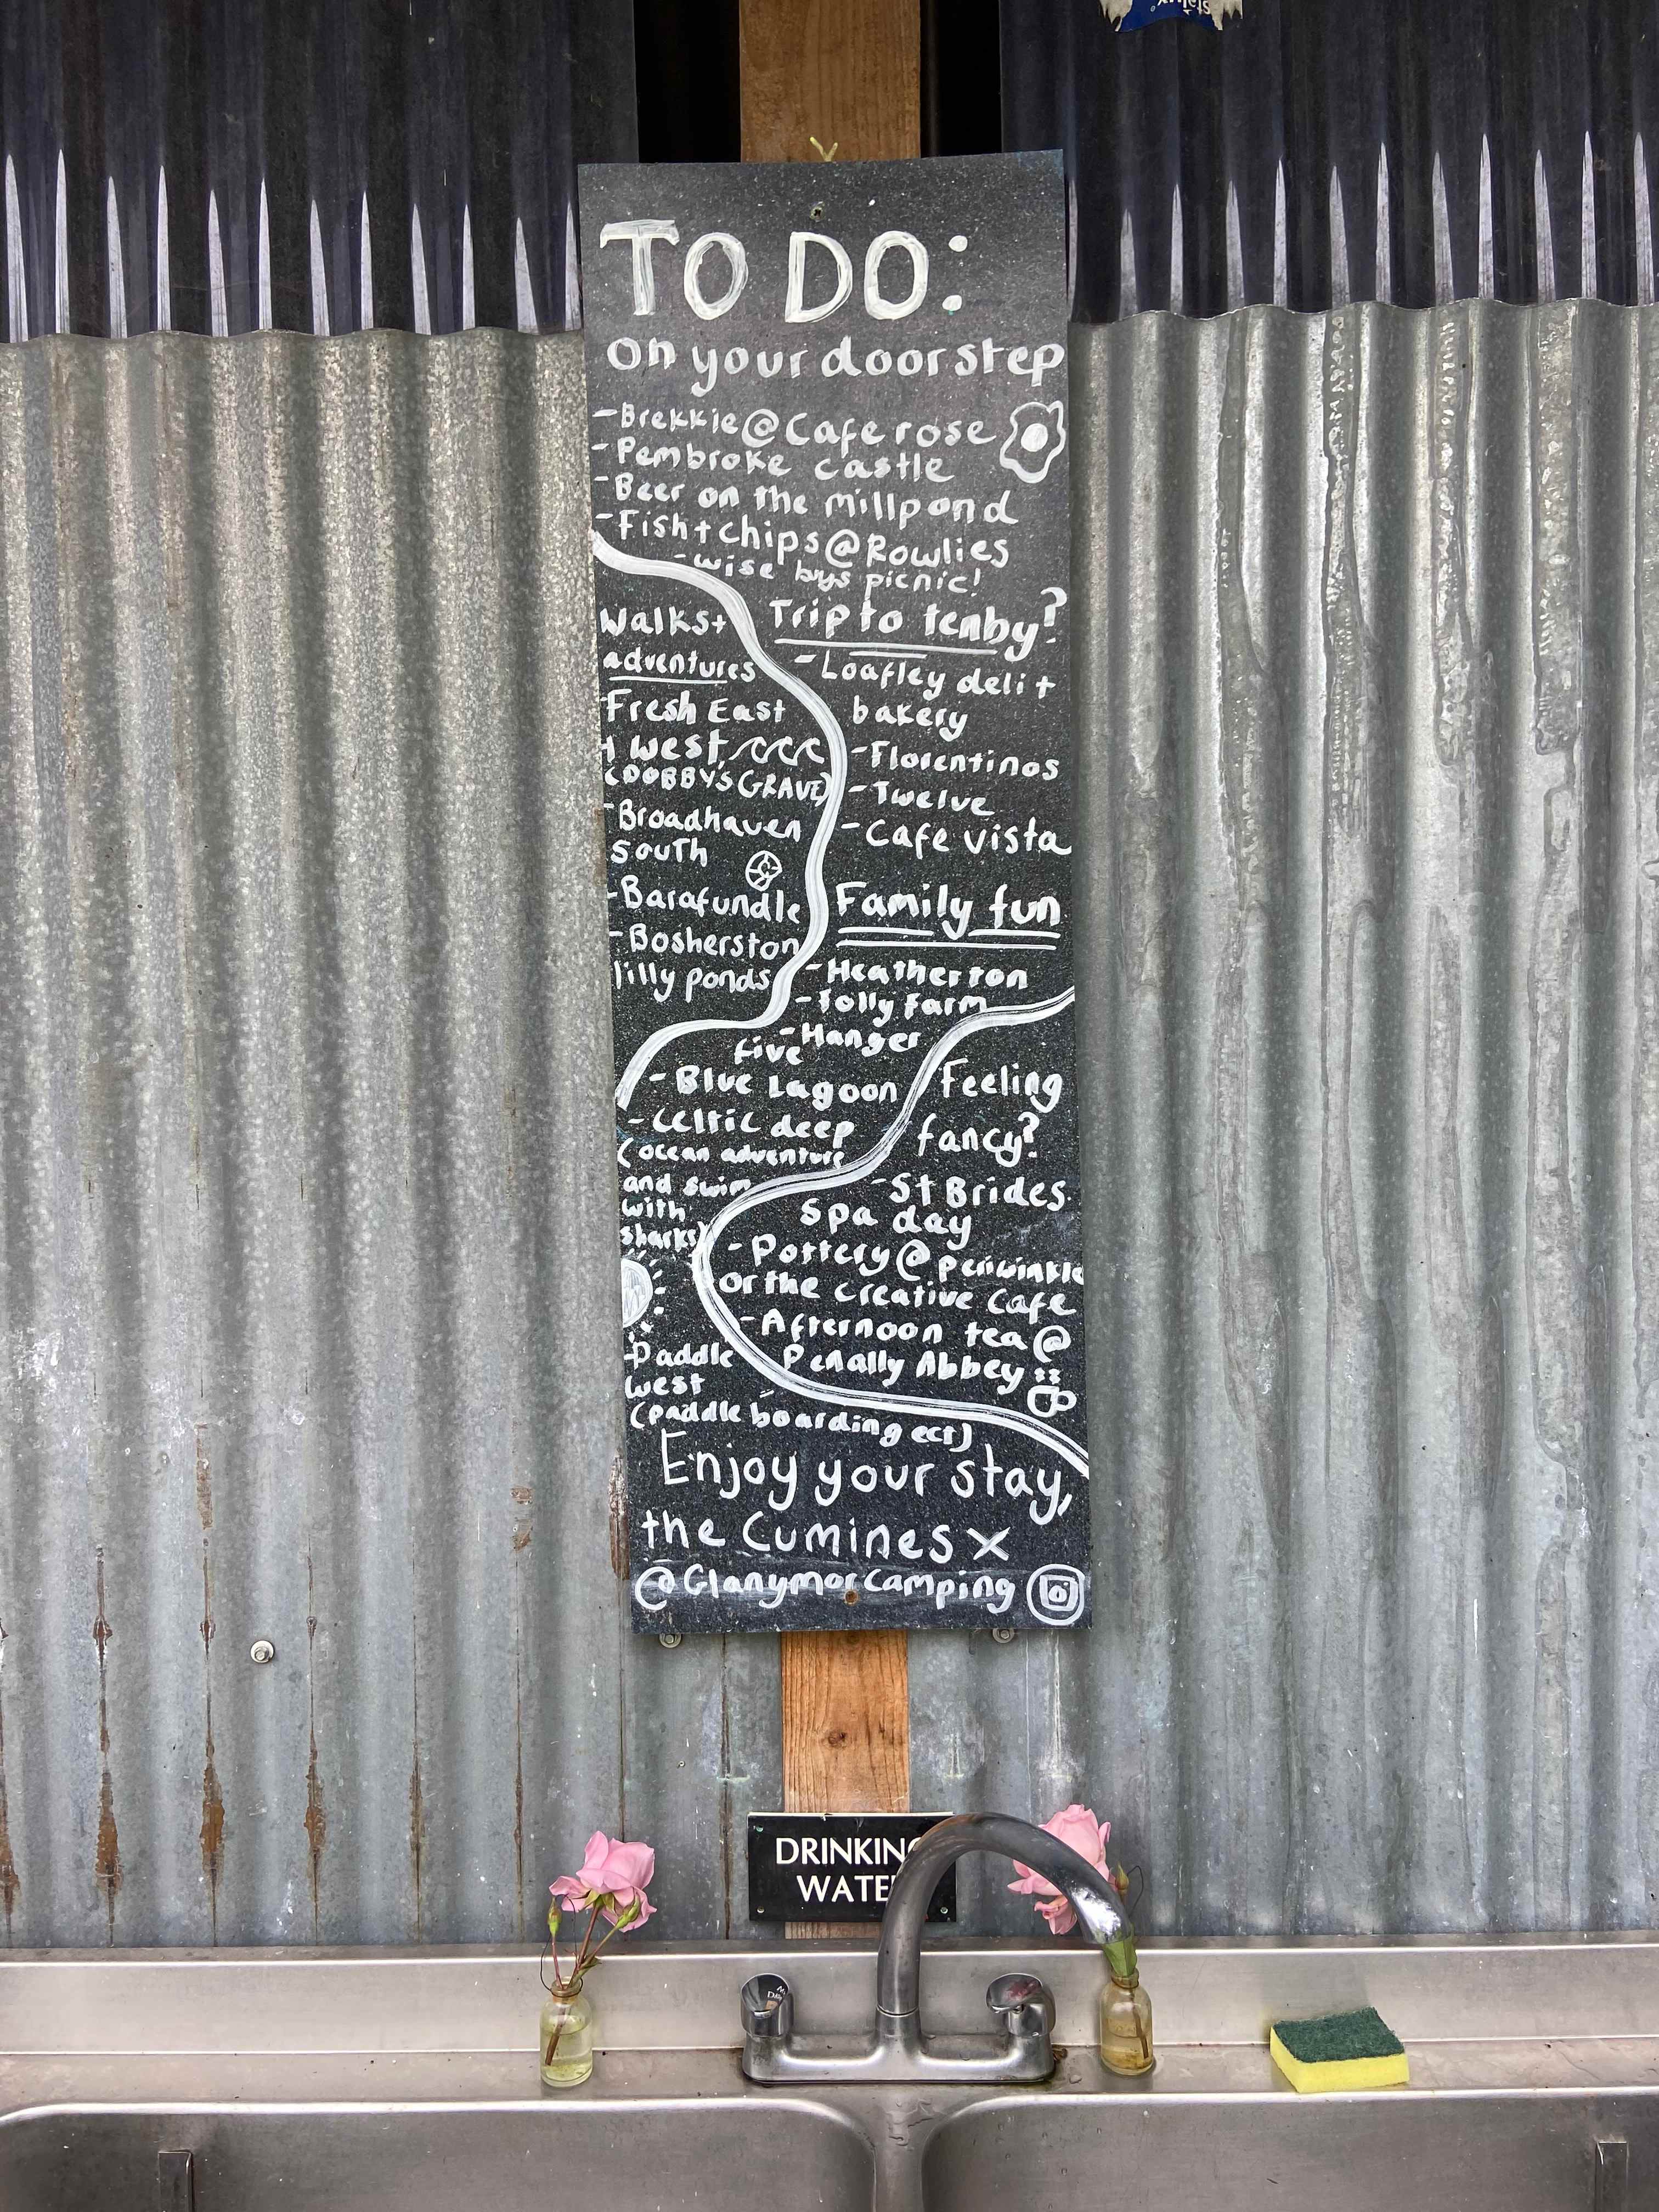 TO DO:
on your doorstep
-Brekkie@Cafe rose
-Pembroke castle
-Beer on the millpond
-Fish+Chips@Rowlies
-wise bys picnic!
Walks+
adventures
Fresh East
+ West
(DOBBY'S GRAVE)
-Broadhaven
South
-Barafundle
-Bosherston
lilly ponds
Trip to tenby?
-Loafley deli +
bakery
-Florentinos
-Twelve
-Cafe vista
Family fun
-Heatherton
-Folly Farm
-Hanger
five
-Blue Lagoon
-Celtic deep
(ocean adventure
and swim
with
sharks)
-Paddle
west
(paddle boarding ect)
Feeling
fancy?
-St Brides
spa day
-Pottery @ periwinkle
or the Creative Cafe
-Afternoon tea @
Penally Abbey
Enjoy your stay,
the Cumines x
@Glanymorcamping
DRINKING
WATER